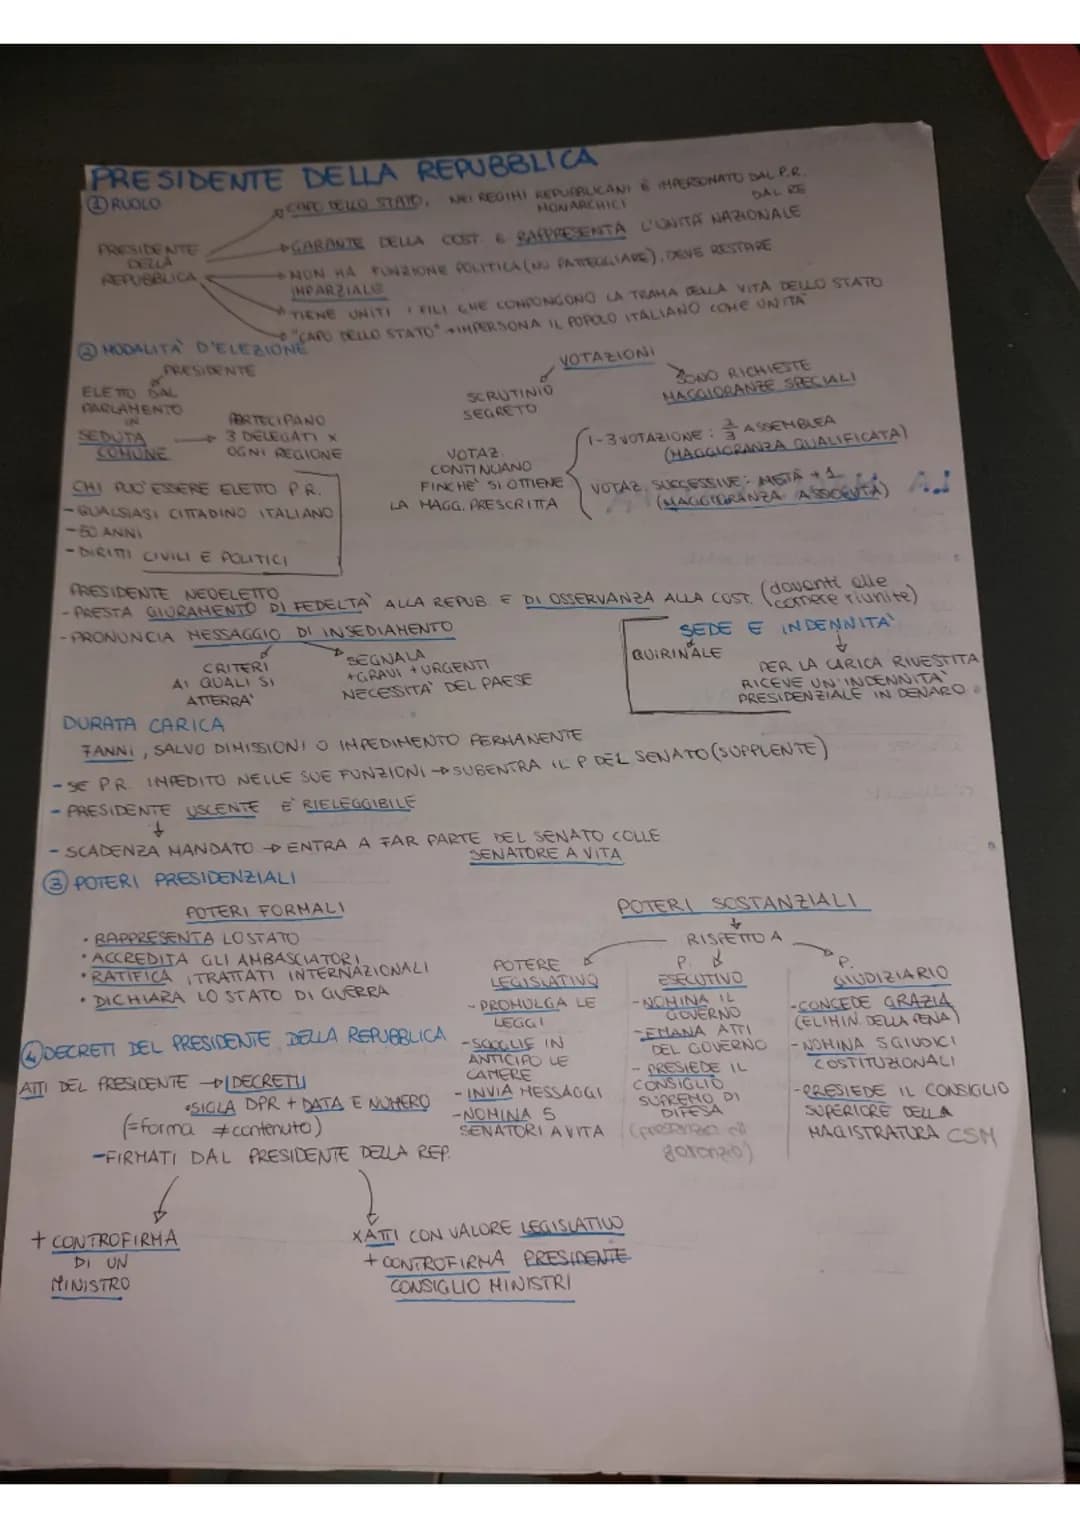 PRESIDENTE DELLA REPUBBLICA
① RUOLO
PRESIDENTE
DELLA
REPUBBLICA
CAPO DELLO STATO, NEI REGIMI REPUBBLICANI È IMPERSONATO DAL P.R.
MONARCHICI DAL RE
GARANTE DELLA COST. E RAPPRESENTA L'UNITÀ NAZIONALE
NON HA FUNZIONE POLITICA (NO PATTEGGIARE), DEVE RESTARE
IMPARZIALE
TIENE UNITI I FILI CHE CONPONGONO LA TRAMA DELLA VITA DELLO STATO
"CAPO DELLO STATO" → IMPERSONA IL POPOLO ITALIANO COME UNITÀ
② MODALITÀ D'ELEZIONE
PRESIDENTE
ELETTO DAL
PARLAMENTO
IN
SEDUTA
COMUNE
→ PARTECIPANO
3 DELEGATI X
OGNI REGIONE
VOTAZIONI
SCRUTINIO
SEGRETO
SONO RICHIESTE
MAGGIORANZE SPECIALI
VOTAZ.
CONTINUANO
FINCHÈ SI OTTIENE
LA MAGG. PRESCRITTA
1-3 VOTAZIONE: 2/3 ASSEMBLEA
(MAGGIORANZA QUALIFICATA)
VOTAZ. SUCCESSIVE: METÀ + 1
(MAGGIORANZA ASSOLUTA)
CHI PUO' ESSERE ELETTO P.R.
- QUALSIASI CITTADINO ITALIANO
- 50 ANNI
- DIRITTI CIVILI E POLITICI
PRESIDENTE NEOELETTO
- PRESTA GIURAMENTO DI FEDELTÀ ALLA REPUB. E DI OSSERVANZA ALLA COST. (davanti alle
camere riunite)
- PRONUNCIA MESSAGGIO DI INSEDIAMENTO
CRITERI
AI QUALI SI
ATTERRA'
SEGNALA
+GRAVI +URGENTI
NECESSITA' DEL PAESE
SEDE E INDENNITÀ
QUIRINALE
PER LA CARICA RIVESTITA
RICEVE UN'INDENNITÀ
PRESIDENZIALE IN DENARO
DURATA CARICA
7ANNI, SALVO DIMISSIONI O IMPEDIMENTO PERMANENTE
- SE P.R. IMPEDITO NELLE SUE FUNZIONI → SUBENTRA IL P DEL SENATO (SUPPLENTE)
- PRESIDENTE USCENTE E' RIELEGGIBILE
- SCADENZA MANDATO → ENTRA A FAR PARTE DEL SENATO COLLE
SENATORE A VITA
③ POTERI PRESIDENZIALI
POTERI FORMALI
• RAPPRESENTA LO STATO
• ACCREDITA GLI AMBASCIATORI
• RATIFICA I TRATTATI INTERNAZIONALI
• DICHIARA LO STATO DI GUERRA
POTERI SOSTANZIALI
RISPETTO A
POTERE
LEGISLATIVO
- PROMULGA LE
LEGGI
- SCIOGLIE IN
ANTICIPO LE
CAMERE
- INVIA MESSAGGI
- NOMINA 5
SENATORI A VITA
P.
ESECUTIVO
- NOMINA IL
GOVERNO
- EMANA ATTI
DEL GOVERNO
- PRESIEDE IL
CONSIGLIO
SUPREMO DI
DIFESA
P.
GIUDIZIARIO
- CONCEDE GRAZIA
(ELIMIN. DELLA PENA)
- NOMINA 5 GIUDICI
COSTITUZIONALI
- PRESIEDE IL CONSIGLIO
SUPERIORE DELLA
MAGISTRATURA CSM
④ DECRETI DEL PRESIDENTE DELLA REPUBBLICA
ATTI DEL PRESIDENTE → DECRETI
• SIGLA DPR + DATA E NUMERO
(= forma ≠ contenuto)
- FIRMATI DAL PRESIDENTE DELLA REP.
+ CONTROFIRMA
DI UN
MINISTRO
X ATTI CON VALORE LEGISLATIVO
+ CONTROFIRMA PRESIDENTE
CONSIGLIO MINISTRI